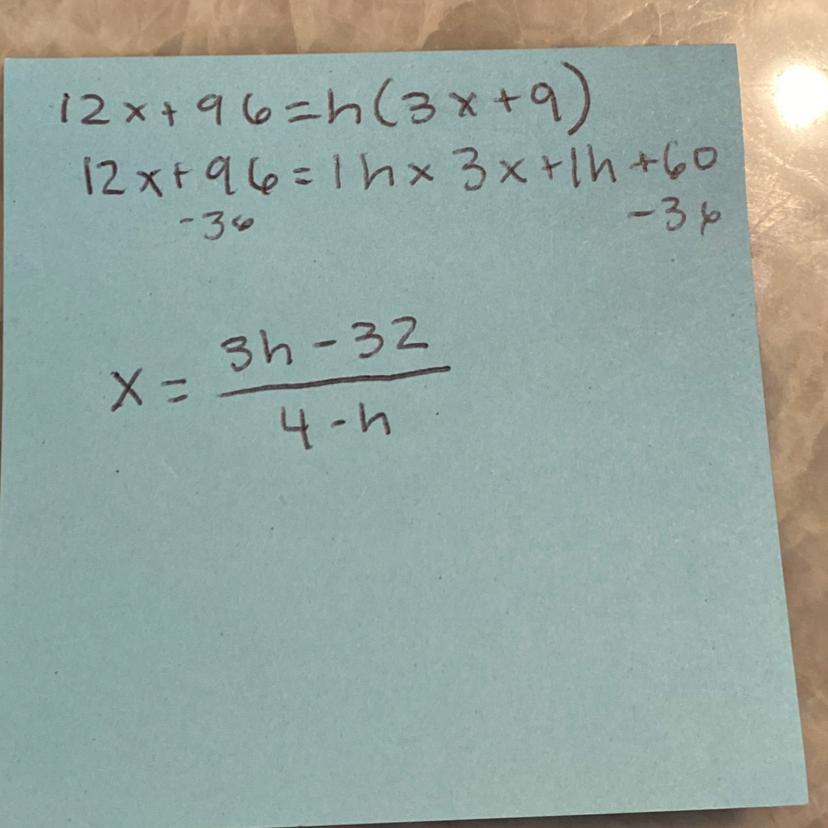 12x+96=h(3x+9)
12x+96=1hx 3x+1h+60
-36 -36
x= 3h-32
4-h